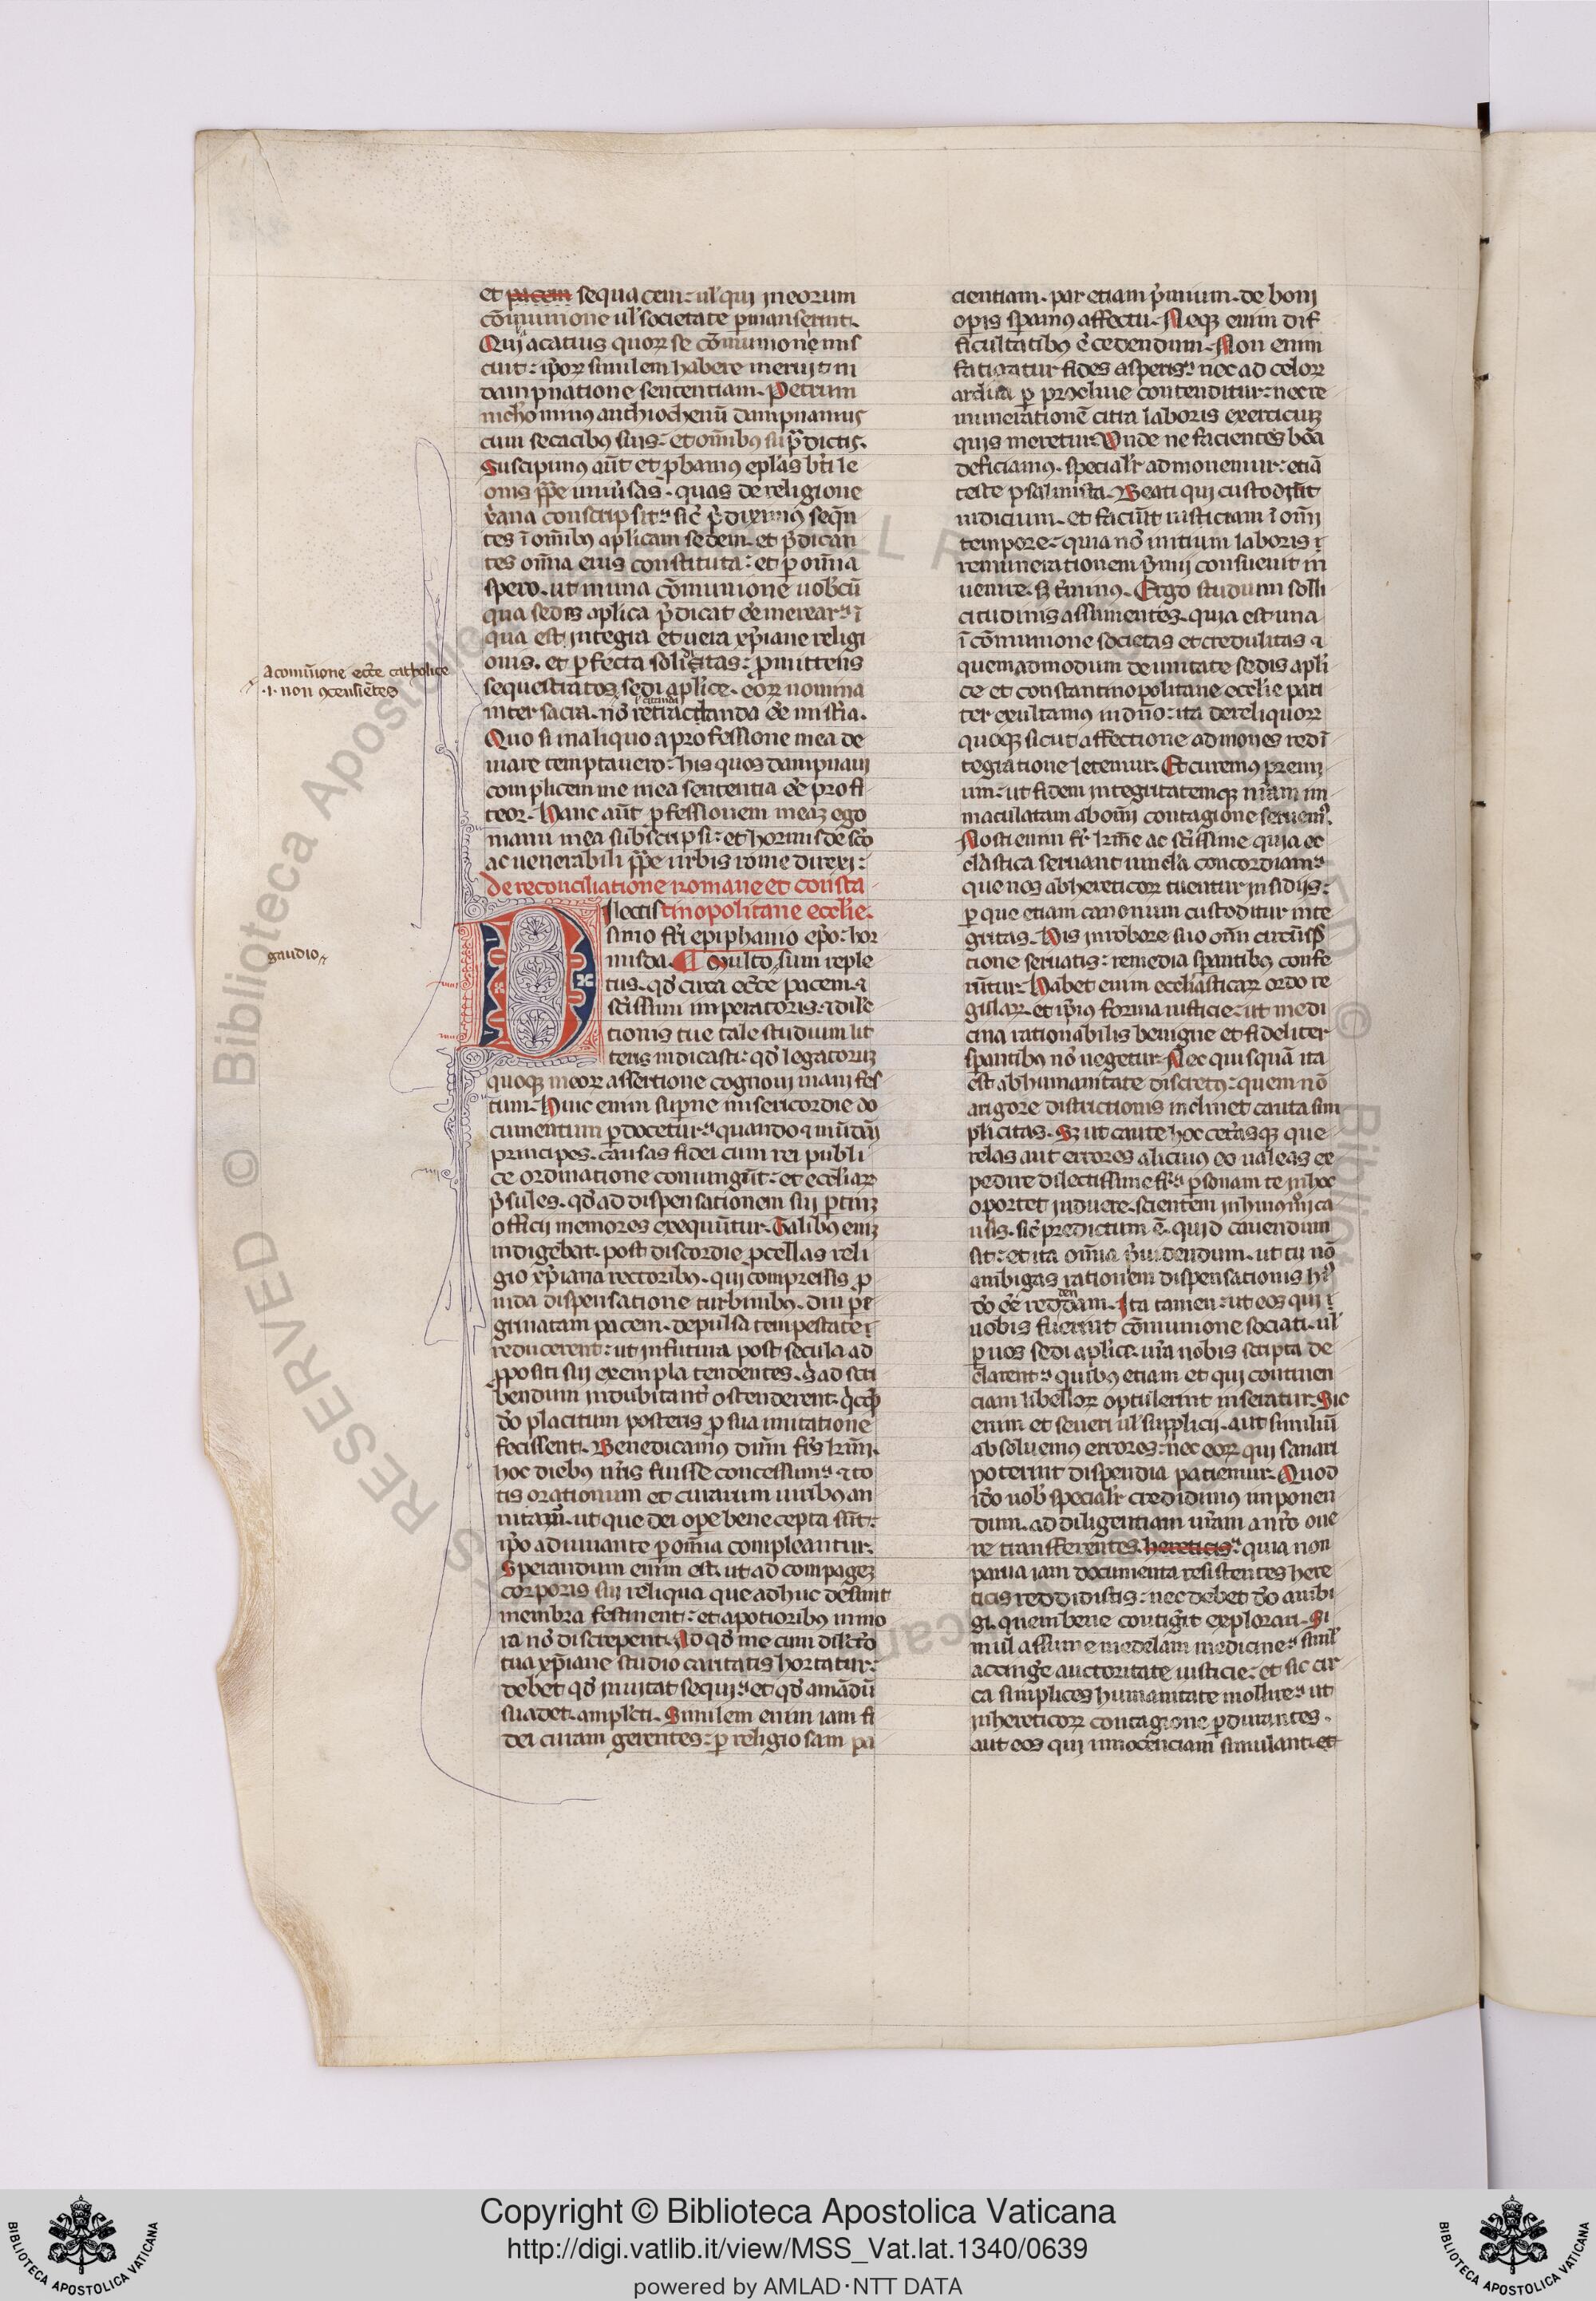 et pacem sequacem: ul' qui in eorum
cōmunione ul' societate ꝑmanserint.
Qui acatius quorꝝ se cōmunione mis
cuit: ip̄orꝝ similem habere meruit in
dampnatione sententiam. Petrum
nichominus anthiochenū dampnamus
cum secacibꝰ suis: et om̄ibꝰ sup̄dictis.
Suscipimꝰ aūt et ꝓbamꝰ ep̄las b̄ti le
onis pp̄e uniu'sas. quas de religione
x̄ana conscripsit. sic̄ p̄diximꝰ seqn̄
tes ī om̄ibꝰ aplicam sedem. et p̄dican
tes om̄ia eius constituta: et ꝑ om̄ia
spero. ut in una cōmunione uobcū
qua sedis aplica p̄dicat eē merear ⁊ ī
qua est integra et uera xp̄iane religi
onis. et ꝑfecta soliditas: ꝓmittens
sequestratos sedi aplice. eorꝝ nomina
inter sacra. nō retractanda eē mist̄ia.
Quo si in aliquo a professione mea de
uiare temptauero: his quos dampnaui
complicem me mea sententia eē profi
teor. Hanc aūt ꝓfessionem meaꝫ ego
manu mea subscripsi: et hormisde sc̄o
ac uenerabili pp̄e urbis rome direxi:
de reconciliatione romane et consta
tinopolitane ecclie.
Dilectis
simo fr̄i epiphanio ep̄o: hor
misda. Multo sum reple
tus. qd̄ circa ecc̄e pacem. ⁊
sc̄issimi imperatoris. ⁊ dile
ctionis tue tale studium lit
teris indicasti: qd̄ legatoruꝫ
quoqꝫ meorꝝ assertione cognoui manifes
tum. Hinc enim suꝑne misericordie do
cumentum ꝑdocetur. quando ⁊ mūdani
principes. causas fidei cum rei publi
ce ordinatione coniungūt: et eccliarꝝ
p̄sules. qd̄ ad dispensationem sui ꝑtinꝫ
officii memores exequūtur. Talibꝰ enīꝫ
indigebat. post discordie ꝓcellas reli
gio xp̄iana rectoribꝰ. qui compressis ꝓ
uida dispensatione turbinibꝰ. diu ꝑe
grinatam pacem. depulsa tempestate ī
reducerent: ut in futura post secula ad
ꝓpositi sui exempla tendentes. s ad scri
bendum indubitant̄ ostenderent. qicqd
do placitum posteris ꝑ sua imitatione
fecissent. Benedicamꝰ dum fr̄s krm̄i.
hoc diebꝰ nr̄is fuisse concessum. ⁊ to
tis orationum et curarum uiribꝰ an
nitamr̄. ut que dei ope bene cepta sūt:
ip̄o adiuuante ꝑ om̄ia compleantur.
Sperandum enim est. ut ad compageꝫ
corporis sui reliqua que adhuc desunt
membra festinent: et a potioribꝰ mino
ra nō discrepent. Ad qd̄ me cum dilcto
tua xp̄iane studio caritatis hortatur:
debet qd̄ inuitat sequi. et qd̄ amādū
suadet. amplecti. Similem enim iam fi
dei curam gerentes: ꝑ religiosam pa
cientiam. par etiam p̄mium. de boni
opis spamꝰ affectu. Neqꝫ enim dif
ficultatibꝰ ē cedendum. Non enim
fatigatur fides asperis. nec ad celorꝝ
ardua ꝑ procliue contenditur: nec re
munerationē citra laboris exercituꝫ
quis meretur. Unde ne facientes bōa
deficiamꝰ. specialr̄ admonemur: etiā
teste psalmista. Beati qui custodiūt
iudicium. et faciūt iusticiam ī om̄i
tempore: quia nō initium laboris ī
remunerationem p̄mii consueuit in
uenire. sꝫ t̄minꝰ. Ergo studium solli
citudinis assumentes. quia est una
ī cōmunione societas et credulitas ⁊
quemadmodum de unitate sedis apli
ce et constantinopolitane ecclie pari
ter exultamus in dn̄o: ita de reliquorꝝ
quoqꝫ sicut affectione admones redī
tegratione letemur. Et curemꝰ p̄mi
um: ut fidem integritatemqꝫ nr̄am im
maculatam ab om̄i contagione seruemꝰ.
Nosti enim fr̄ krm̄e ac sc̄issime quia ec
clastica seruant uincla concordiam.
que nos ab hereticorꝝ tuentur insidiis:
ꝑ que etiam canonum custoditur inte
gritas. His in robore suo om̄i circūsp̄
ctione seruatis: remedia sp̄antibꝰ confe
rūtur. Habet enim eccliasticarꝝ ordo re
gularꝝ. et ip̄ius forma iusticie: ut medi
cina rationabilis benigne et fideliter
sp̄antibꝰ nō negetur. Nec quisquā ita
est ab humanitate discretꝰ: quem nō
a rigore districtionis inclinet cauta sim
plicitas. Sꝫ ut caute hoc cet̄asqꝫ que
relas aut errores alicuius eo ualeas ex
pedire dilectissime fr̄. ꝑsonam te in hoc
oportet induere. scientem in huiusmodi ca
usis. sic̄ predictum ē. quid cauendum
sit: et ita om̄ia p̄uidendum. ut tu nō
ambigas rationem dispensationis hꝰ
do eē reddendam. Ita tamen: ut eos qui ī
uobis fuerint cōmunione sociati. ul'
ꝑ uos sedi aplice. ur̄a nobis scripta de
clarent. quibus etiam et qui continen
ciam libellorꝝ optulerint inseratur. Sic
enim et seueri ul' supplicii. aut similiū
absoluemꝰ errores: nec eorꝝ qui sanari
poterint dispendia patiemur. Quod
ido uob specialr̄ credidimus imponen
dum. ad diligentiam ur̄am a nr̄o one
re transferentes. hereticis. quia non
parua iam documenta resistentes here
ticis reddidistis: nec debet do ambi
gi. quem bene contigit explorari. Si
mul assume medelam medicine. simul
accinge auctoritate iusticie: et sic cir
ca simplices humanitate mollire. ut
in hereticorꝝ contagione ꝑdurantes.
aut eos qui innocenciam simulant. et
a comūnione ecc̄e catholice
.i. non ꝯsensiētes
gaudio
Copyright © Biblioteca Apostolica Vaticana
http://digi.vatlib.it/view/MSS_Vat.lat.1340/0639
powered by AMLAD·NTT DATA
BIBLIOTECA APOSTOLICA VATICANA
BIBLIOTECA APOSTOLICA VATICANA